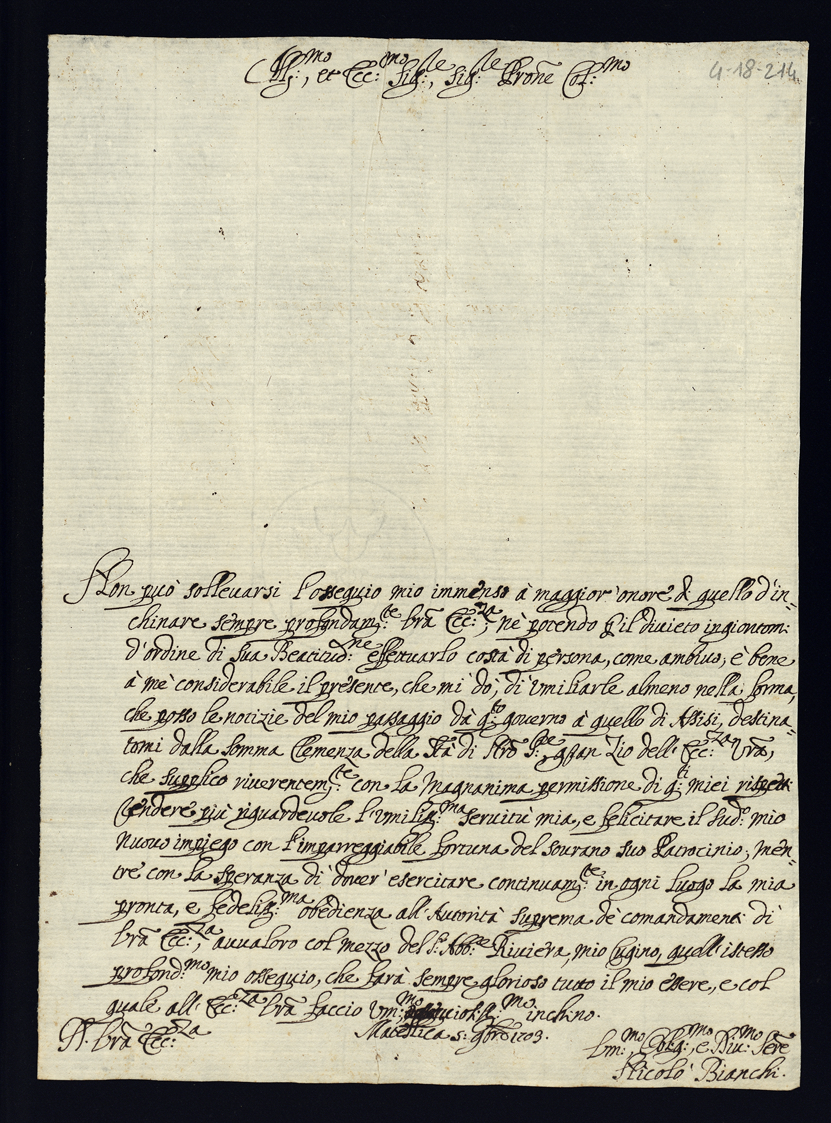 Ill:mo, et Ecc:mo Sig:re, Sig:re Prone Col:mo
4-18-214
Non può sollevarsi l'ossequio mio immenso à maggior'onore di quello d'in-
chinare sempre profondam:te Vra Ecc:za; nè potendo p il divieto ingiontomi
d'ordine di Sua Beatitud:ne effettuarlo costà di persona, come ambivo; è bene
à mè considerabile il presente, che mi dò, di Umiliarle almeno nella forma,
che posso le notizie del mio passaggio dà q:to governo à quello di Assisi, destina-
tomi dalla somma Clemenza della Stà di Nro S:re, gran Zio dell'Ecc:za Vra,
che supplico riverentem:te con la Magnanima permissione di q:ti miei rispetti
rendere più riguardevole l'Umiliss:ma servitù mia, e felicitare il sud:o mio
nuovo impiego con l'impareggiabile fortuna del sovrano suo Patrocinio; Men-
tre con la speranza di dover'esercitare continuam:te in ogni luogo la mia
pronta, e fedeliss:ma obedienza all'Autorità suprema de comandamenti di
Vra Ecc:za, avvaloro col mezzo del S:r Abb:te Riviera, mio Cugino, quell'istesso
profond:mo mio ossequio, che farà sempre glorioso tutto il mio essere, e col
quale all'Ecc:za Vra faccio Um:mo inchino.
Di Vra Ecc:za
Matelica 5: 9bre 1703.
Um:mo Oblig:mo, e Div:mo Sere
Nicolò Bianchi.